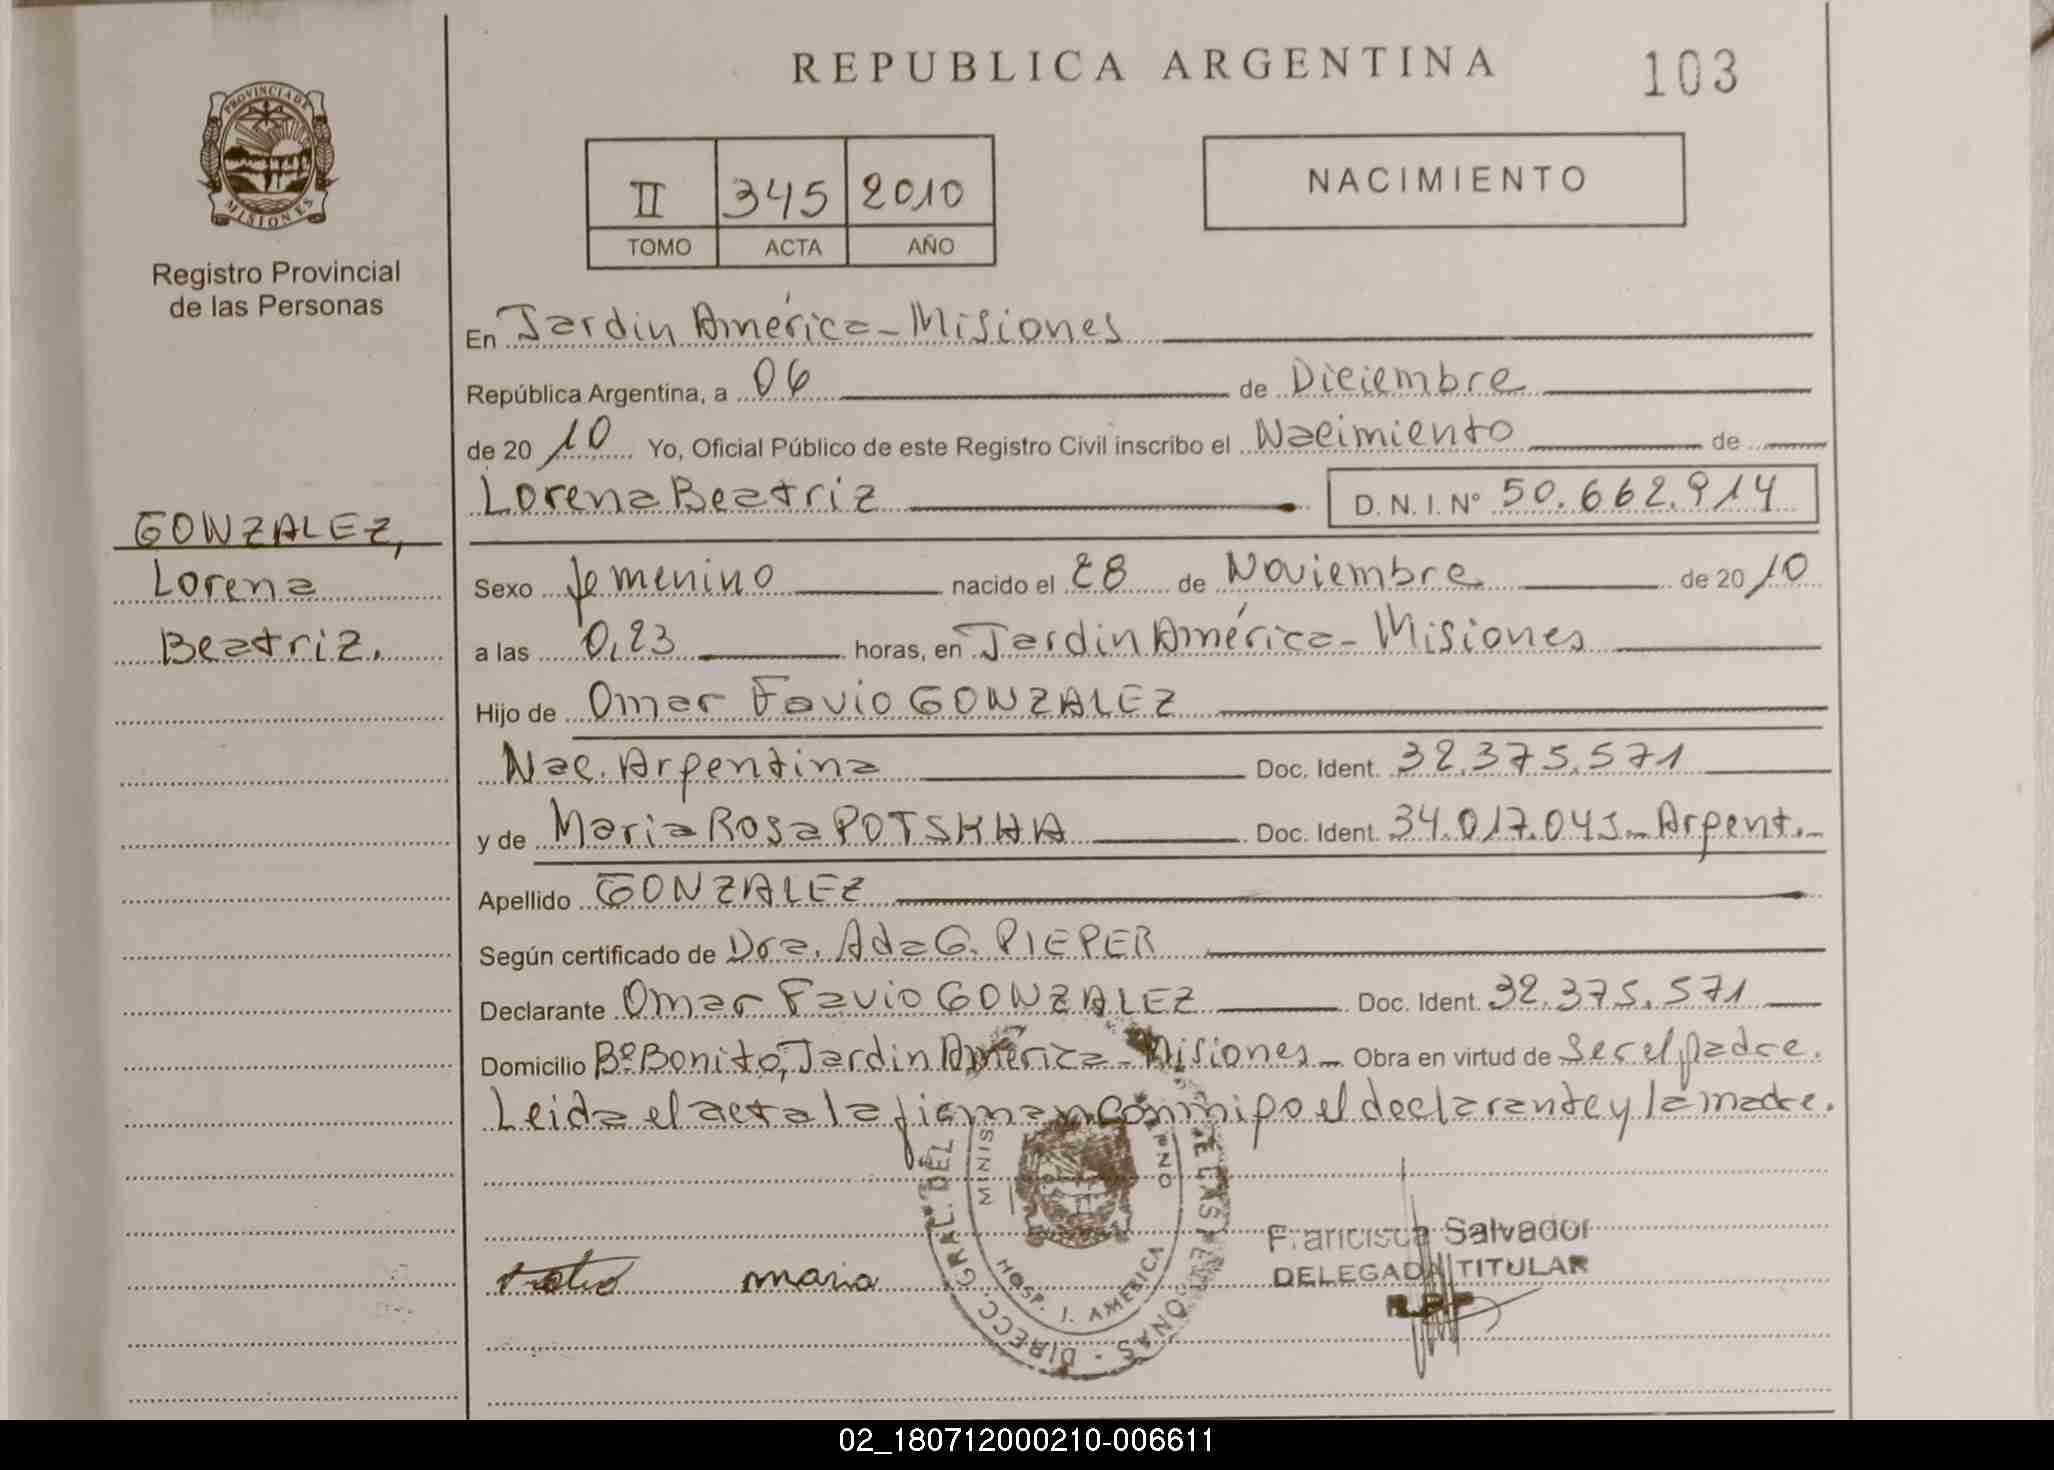 REPUBLICA ARGENTINA
103
PROVINCIA DE
MISIONES
Registro Provincial
de las Personas
II 345 2010
TOMO ACTA AÑO
NACIMIENTO
En Jardin América - Misiones
República Argentina, a 06 de Diciembre
de 2010 Yo, Oficial Público de este Registro Civil inscribo el Nacimiento de
Lorena Beatriz D.N.I.Nº 50.662.914
GONZALEZ,
Lorena
Beatriz.
Sexo femenino nacido el 28 de Noviembre de 2010
a las 0,23 horas, en Jardin América - Misiones
Hijo de Omar Favio GONZALEZ
Nac. Argentina Doc. Ident. 32.375.571
y de Maria Rosa POTSKHA Doc. Ident. 34.017.045 - Argent. -
Apellido GONZALEZ
Según certificado de Dra. Ada G. PIEPER
Declarante Omar Favio GONZALEZ Doc. Ident. 32.375.571
Domicilio Bº Bonito, Jardin América - Misiones - Obra en virtud de Ser el padre.
Leida el acta la firman conmigo el declarante y la madre.
maria
Francisca Salvador
DELEGADA TITULAR
DIRECC. GRAL. DEL
MINIS
HOSP. J. AMERICA
02_180712000210-006611